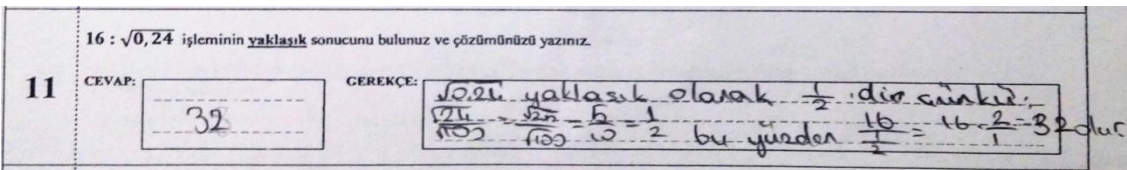 16 : √0,24 işleminin yaklaşık sonucunu bulunuz ve çözümünüzü yazınız.
11 CEVAP: 32 GEREKÇE: √0.24 yaklaşık olarak 1/2 'dir çünkü;
√24/√100 = √25/√100 = 5/10 = 1/2 bu yüzden 16/(1/2) = 16 · 2/1 = 32 olur